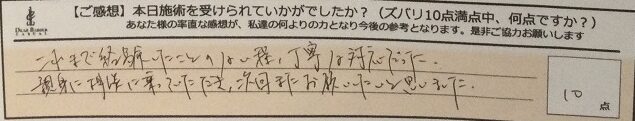 【ご感想】本日施術を受けられていかがでしたか？（ズバリ10点満点中、何点ですか？）
あなた様の率直な感想が、私達の何よりの力となり今後の参考となります。是非ご協力お願いします
これまで経験したことのない程、丁寧な対応だった。
親身に相談に乗っていただき、次回またお願いしたいと思いました。
10点